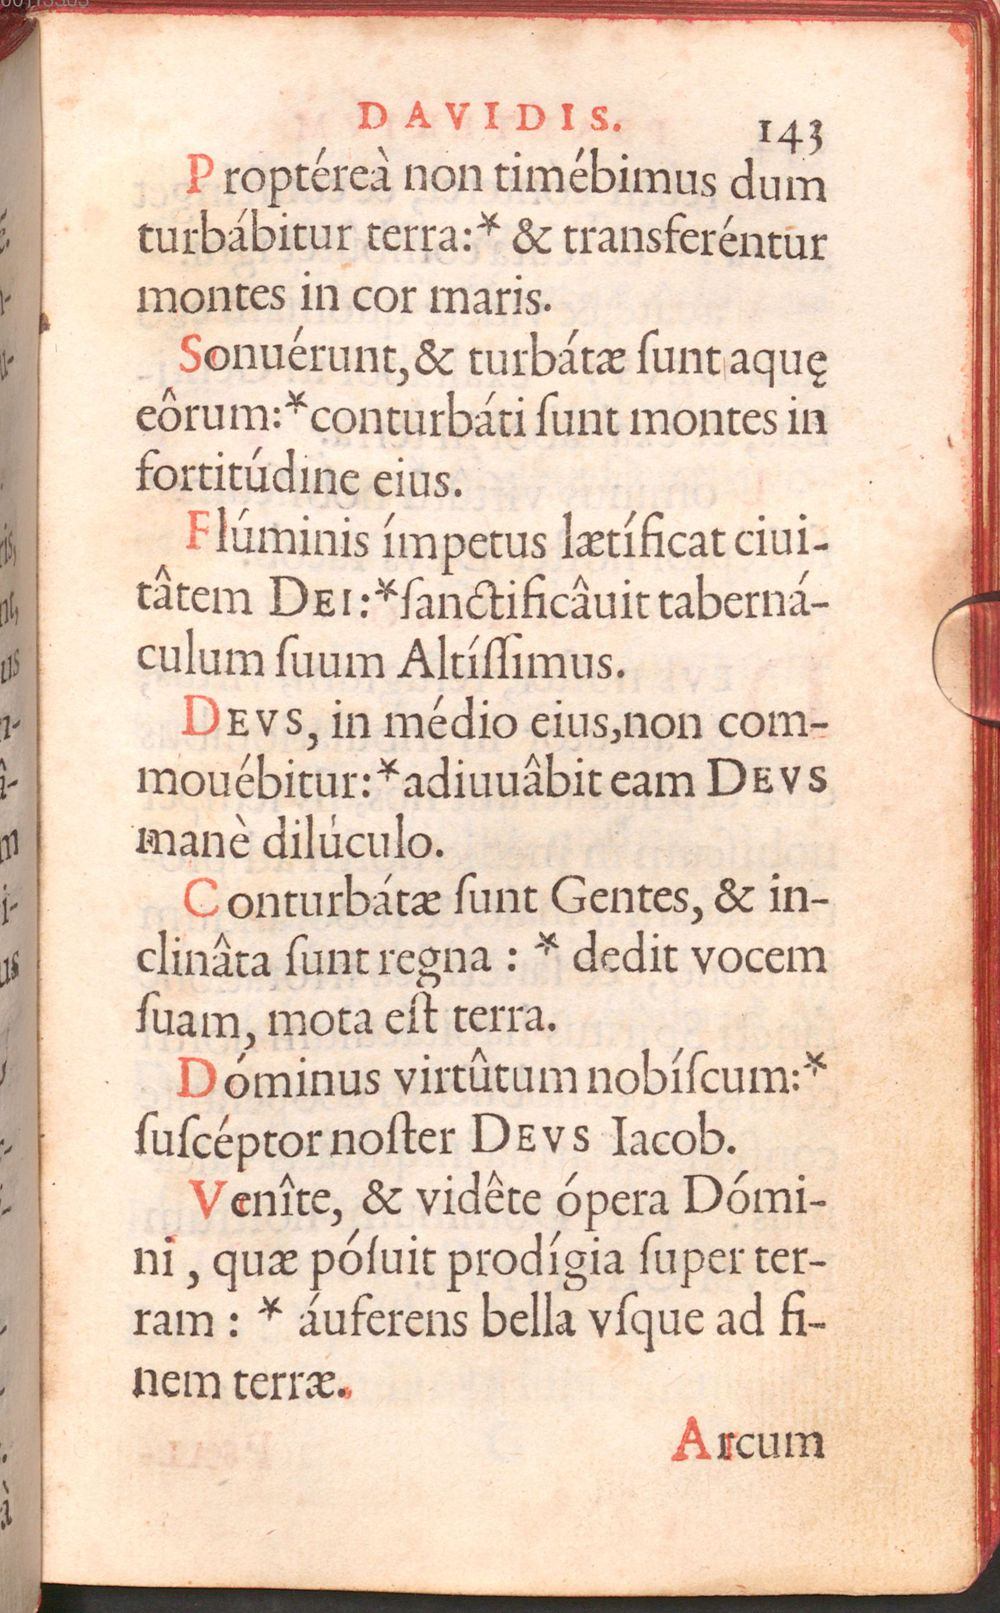 DAVIDIS. 143
Proptéreà non timébimus dum
turbábitur terra:* & transferéntur
montes in cor maris.
Sonuérunt,& turbátæ ſunt aquę
eôrum:* conturbáti ſunt montes in
fortitúdine eius.
Flúminis ímpetus lætíficat ciui-
tâtem DEI:* ſanctificâuit taberná-
culum ſuum Altíſſimus.
DEVS, in médio eius,non com-
mouébitur:* adiuuâbit eam DEVS
manè dilúculo.
Conturbátæ ſunt Gentes, & in-
clinâta ſunt regna : * dedit vocem
ſuam, mota eſt terra.
Dóminus virtûtum nobíſcum:*
ſuſcéptor noſter DEVS Iacob.
Venîte, & vidête ópera Dómi-
ni , quæ póſuit prodígia ſuper ter-
ram : * áuferens bella vſque ad fi-
nem terræ.
Arcum